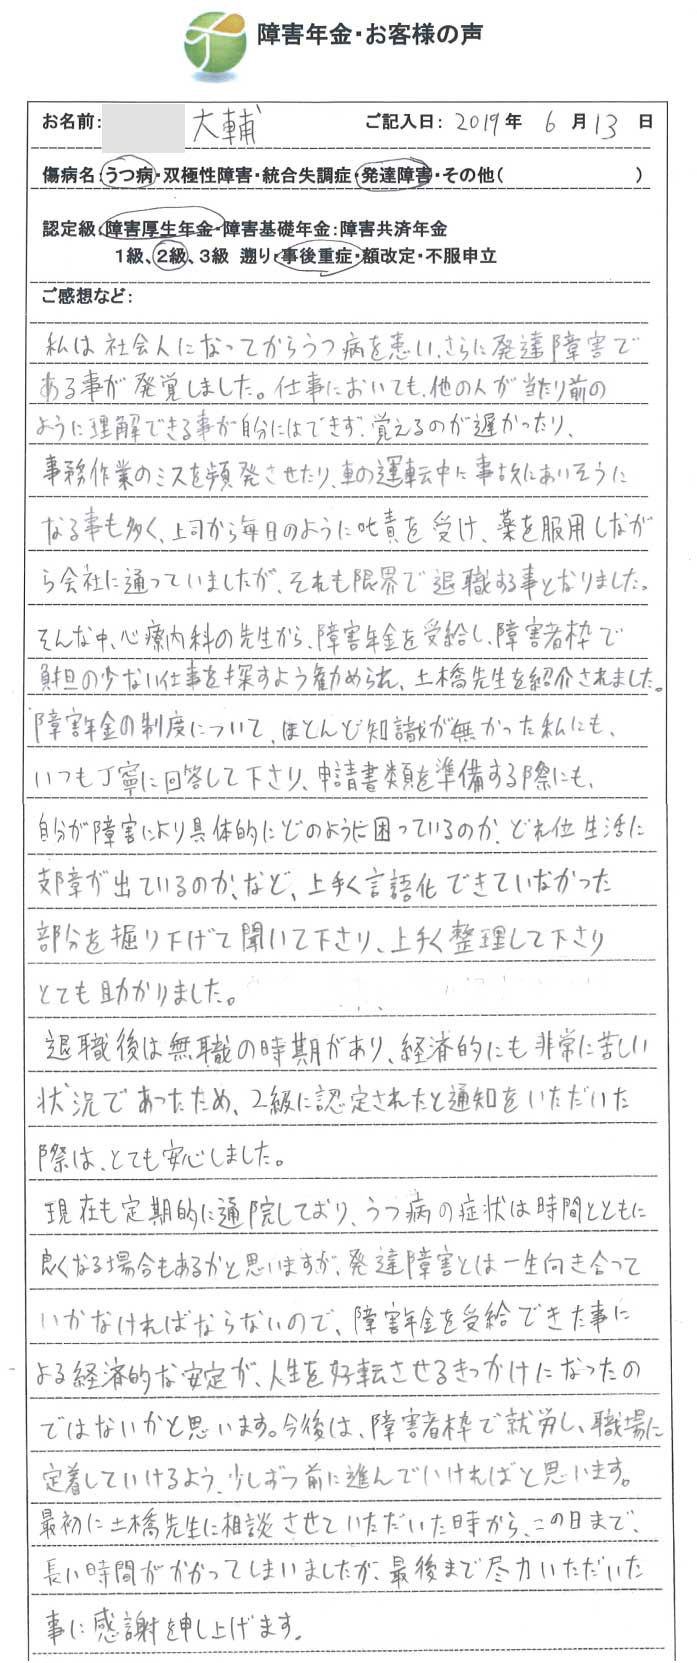 障害年金・お客様の声
お名前: 大輔 ご記入日: 2019年 6月13日
傷病名:うつ病・双極性障害・統合失調症・発達障害・その他( )
認定級:障害厚生年金・障害基礎年金:障害共済年金
1級、2級、3級 遡り・事後重症・額改定・不服申立
ご感想など:
私は社会人になってからうつ病を患い、さらに発達障害で
ある事が発覚しました。仕事においても、他の人が当たり前の
ように理解できる事が自分にはできず、覚えるのが遅かったり、
事務作業のミスを頻発させたり、車の運転中に事故にあいそうに
なる事も多く、上司から毎日のように叱責を受け、薬を服用しなが
ら会社に通っていましたが、それも限界で退職する事となりました。
そんな中、心療内科の先生から、障害年金を受給し、障害者枠で
負担の少ない仕事を探すよう勧められ、土橋先生を紹介されました。
障害年金の制度について、ほとんど知識が無かった私にも、
いつも丁寧に回答して下さり、申請書類を準備する際にも、
自分が障害により具体的にどのように困っているのか、どれ位生活に
支障が出ているのか、など、上手く言語化できていなかった
部分を掘り下げて聞いて下さり、上手く整理して下さり
とても助かりました。
退職後は無職の時期があり、経済的にも非常に苦しい
状況であったため、2級に認定されたと通知をいただいた
際は、とても安心しました。
現在も定期的に通院しており、うつ病の症状は時間とともに
良くなる場合もあるかと思いますが、発達障害とは一生向き合って
いかなければならないので、障害年金を受給できた事に
よる経済的な安定が、人生を好転させるきっかけになったの
ではないかと思います。今後は、障害者枠で就労し、職場に
定着していけるよう、少しずつ前に進んでいければと思います。
最初に土橋先生に相談させていただいた時から、この日まで、
長い時間がかかってしまいましたが、最後まで尽力いただいた
事に感謝を申し上げます。